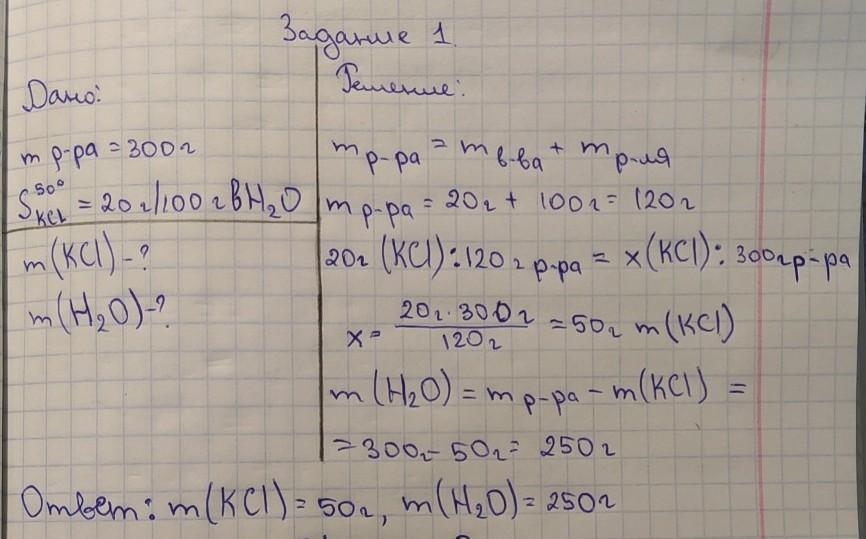 Задание 1.
Дано:
m р-ра = 300г
S⁵⁰°KCl = 20г/100г В H₂O
m(KCl)-?
m(H₂O)-?
Решение:
m р-ра = m в-ва + m р-ля
m р-ра = 20г + 100г = 120г
20г (KCl) : 120г р-ра = x(KCl) : 300г р-ра
x = 20г · 300г / 120г = 50г m(KCl)
m(H₂O) = m р-ра - m(KCl) =
= 300г - 50г = 250г
Ответ: m(KCl) = 50г, m(H₂O) = 250г